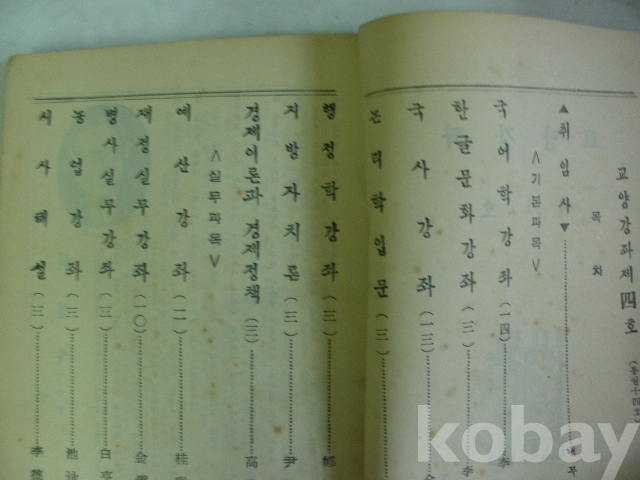 교양강좌제四호
목차
▲취임사▼
<기본과목>
국어학강좌(一四) 李
한글문화강좌(三) 李
국사강좌(一三) 金
논리학입문(三)
행정학강좌(三) 鄭
지방자치론(三) 尹
경제이론과 경제정책(三) 高
<실무과목>
예산강좌(一一) 桂
재정실무강좌(一〇) 金
병사실무강좌(三) 白
농업강좌(三) 池泳
시사해설(三) 李
kobay